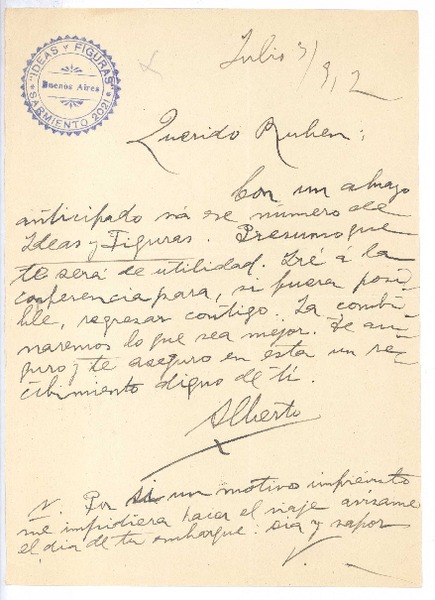 "IDEAS Y FIGURAS"
Buenos Aires
SARMIENTO 2021
Julio 3/912
Querido Ruben:
Con un abrazo
anticipado vá ese número de
Ideas y Figuras. Presumo que
te será de utilidad. Iré á la
conferencia para, si fuera posi-
ble, regresar contigo. La combi-
naremos lo que sea mejor. Te au-
guro y te aseguro en esta un re-
cibimiento digno de tí.
Alberto
V. Por si un motivo imprevisto
me impidiera hacer el viaje avísame
el dia de tu embarque: dia y vapor
V.